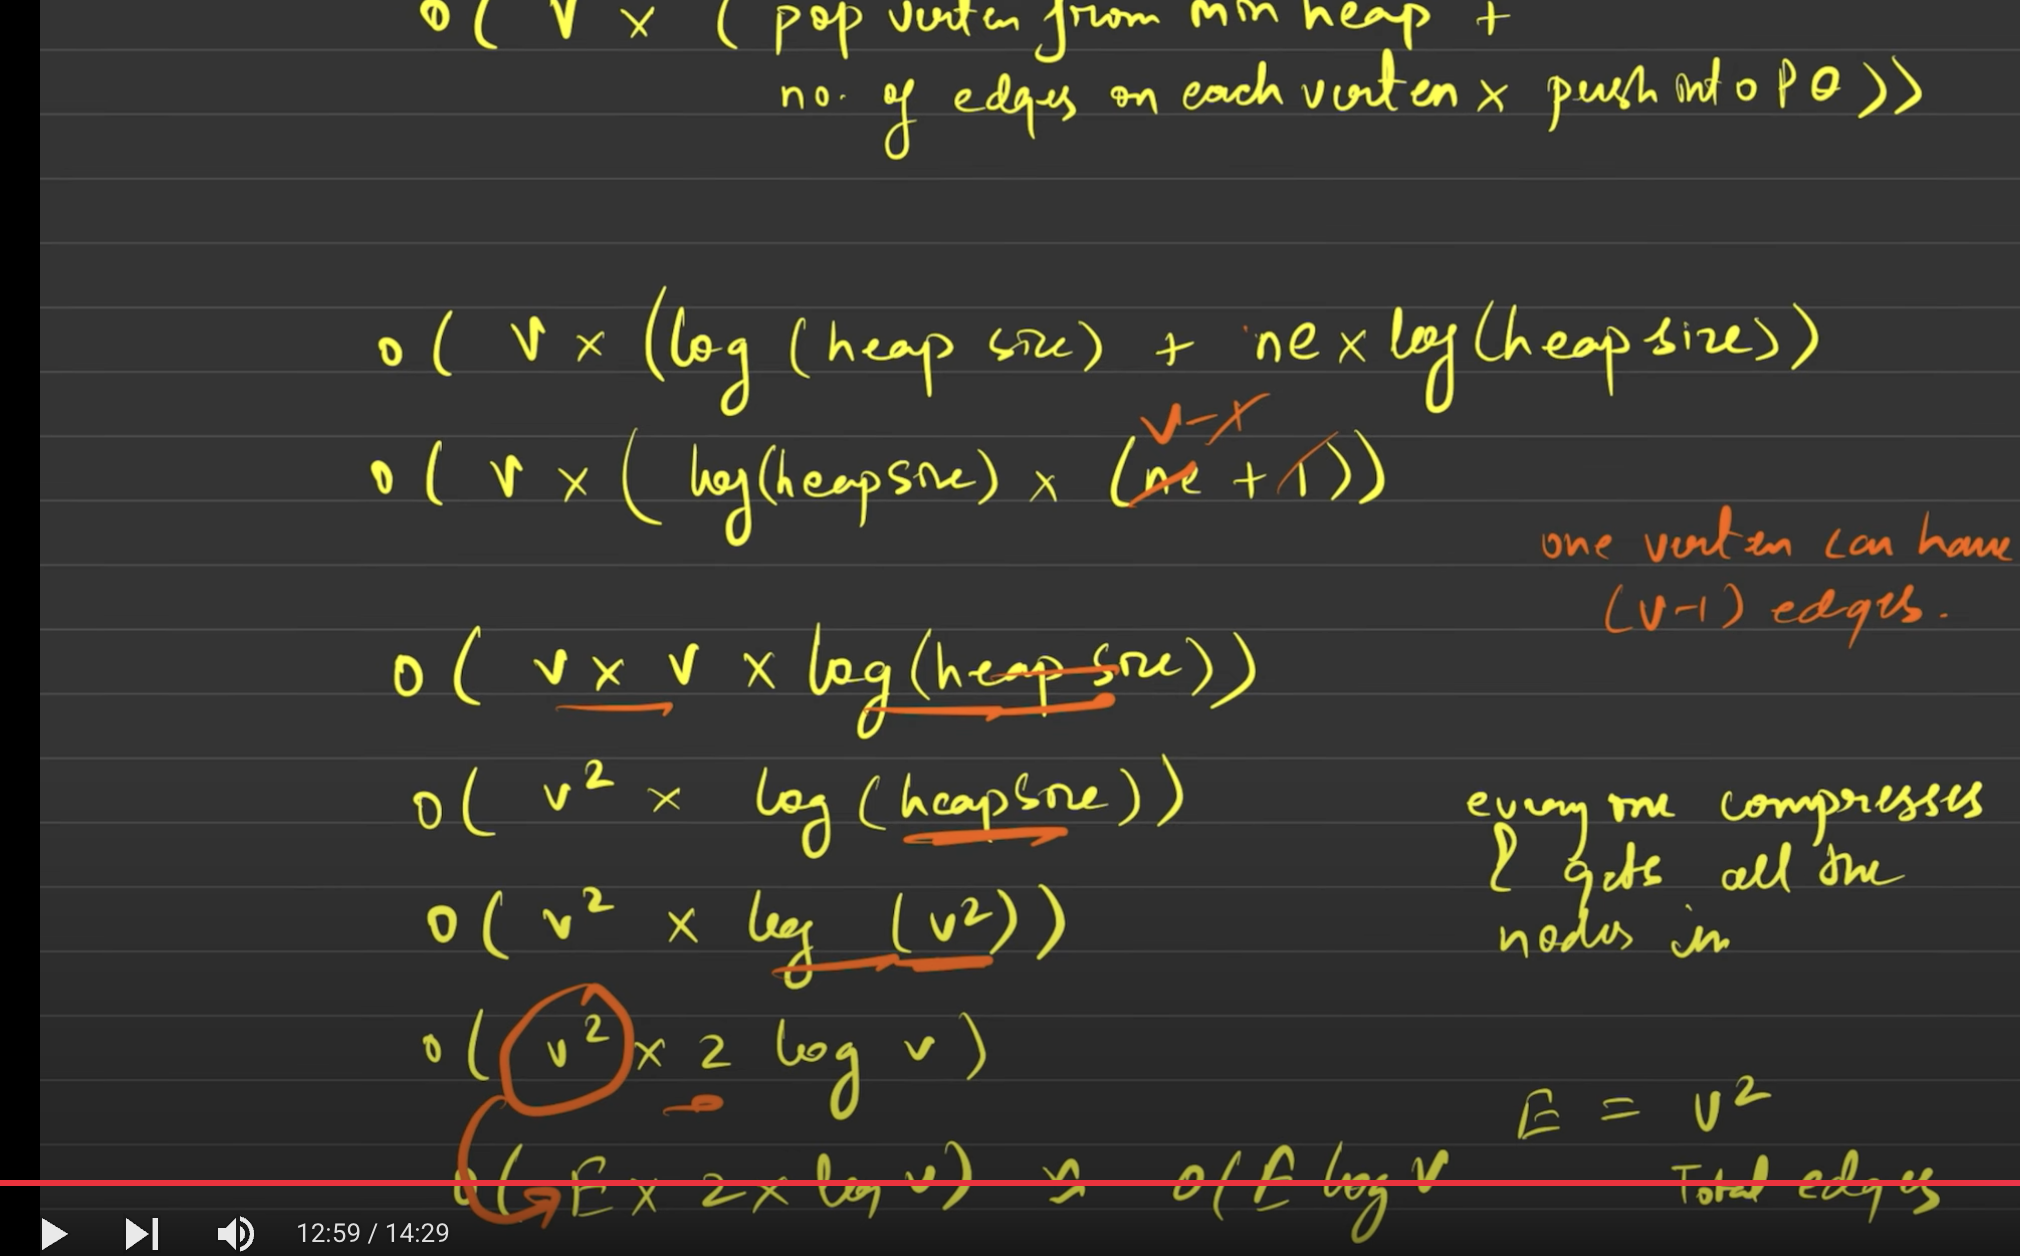 O( V x ( pop vertex from min heap +
no. of edges on each vertex x push into PQ ))
O( V x (log (heap size) + ne x log(heapsize))
V-1
O( V x ( log(heapsize) x (ne + 1))
one vertex can have
(V-1) edges.
O( V x V x log(heap size))
O( V² x log (heapsize))
every one compresses
& gets all the
nodes in
O( V² x log (V²))
O( V² x 2 log V)
E = V²
O( E x 2 x log V) ≈ O( E log V
Total edges
12:59 / 14:29